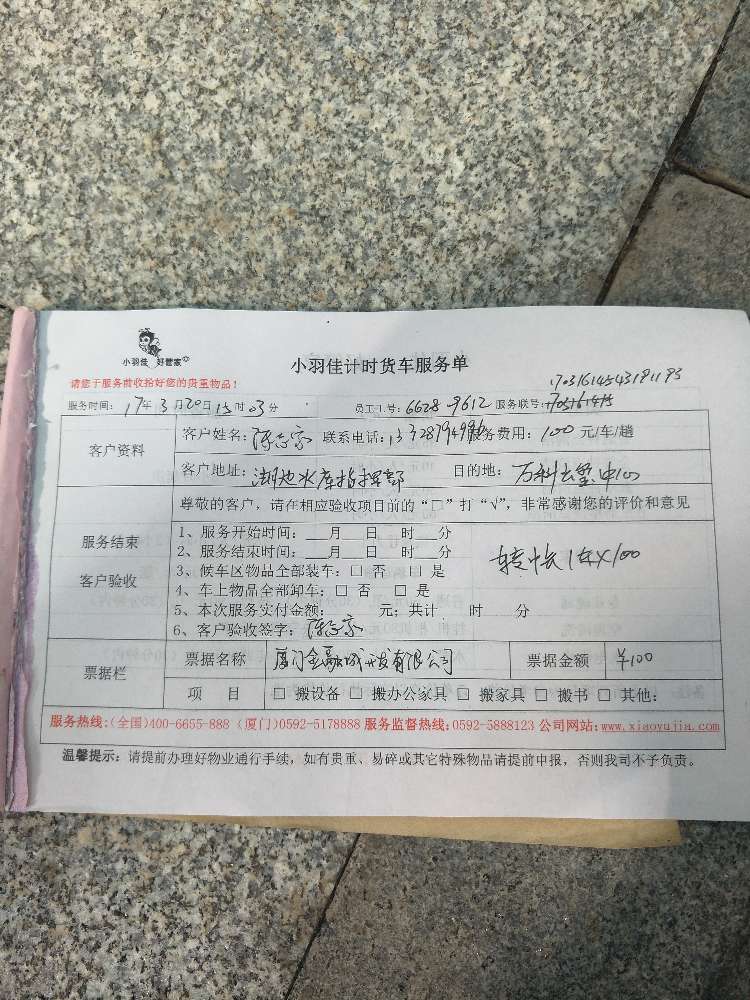 小羽佳 好管家
小羽佳计时货车服务单
请您于服务前收拾好您的贵重物品！
17031614543191193
服务时间：17年3月20日15时03分 员工工号：6628-9612 服务联号：
客户资料
客户姓名： 联系电话： 服务费用：100元/车/趟
客户地址：湖边水库指挥部 目的地：万科云玺
尊敬的客户，请在相应验收项目前的“□”打“√”，非常感谢您的评价和意见
服务结束
客户验收
1、服务开始时间：___月___日___时___分
2、服务结束时间：___月___日___时___分
3、候车区物品全部装车：□ 否 □ 是
4、车上物品全部卸车：□ 否 □ 是
5、本次服务实付金额： 元；共计 时 分
6、客户验收签字：
1车X100
票据栏
票据名称 厦门金融城开发有限公司 票据金额 ¥100
项 目 □ 搬设备 □ 搬办公家具 □ 搬家具 □ 搬书 □ 其他：
服务热线：(全国)400-6655-888 (厦门)0592-5178888 服务监督热线：0592-5888123 公司网站：www.xiaoyujia.com
温馨提示：请提前办理好物业通行手续，如有贵重、易碎或其它特殊物品请提前申报，否则我司不予负责。